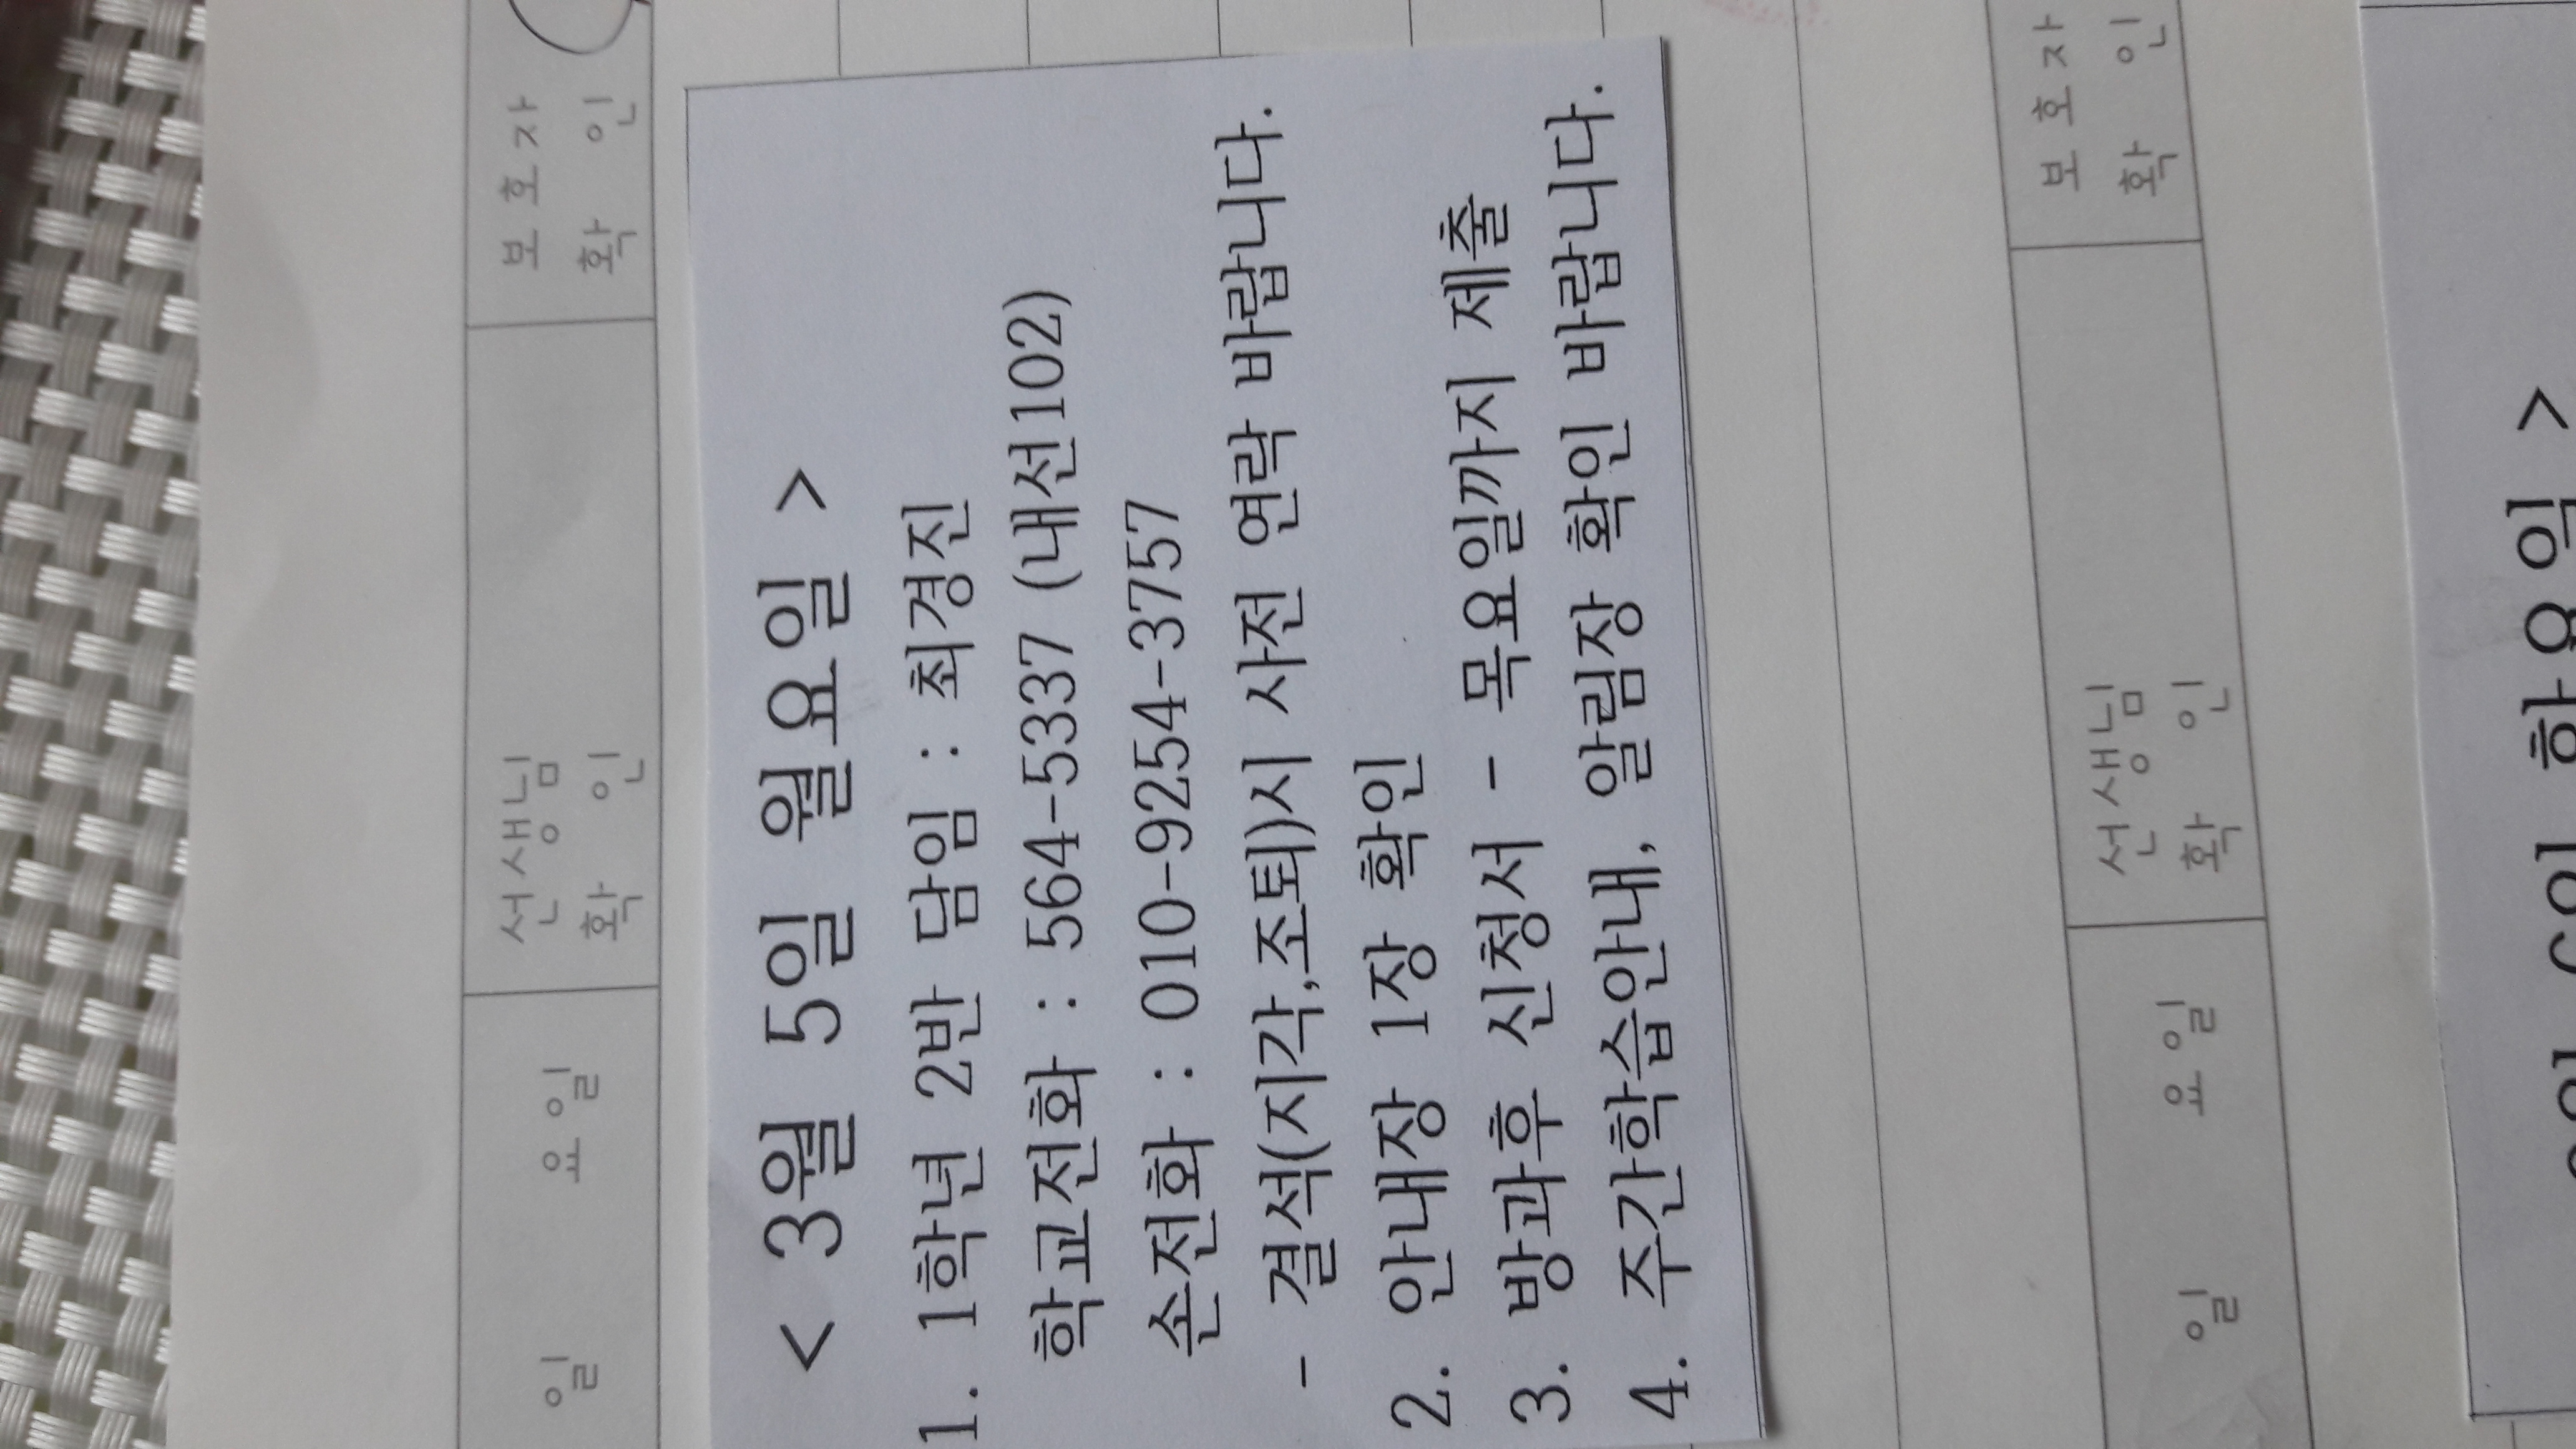 일 요일 선생님 확인 보호자 확인
< 3월 5일 월요일 >
1. 1학년 2반 담임 : 최경진
학교전화 : 564-5337 (내선102)
손전화 : 010-9254-3757
- 결석(지각,조퇴)시 사전 연락 바랍니다.
2. 안내장 1장 확인
3. 방과후 신청서 - 목요일까지 제출
4. 주간학습안내, 알림장 확인 바랍니다.
일 요일 선생님 확인 보호자 확인
화요일 >